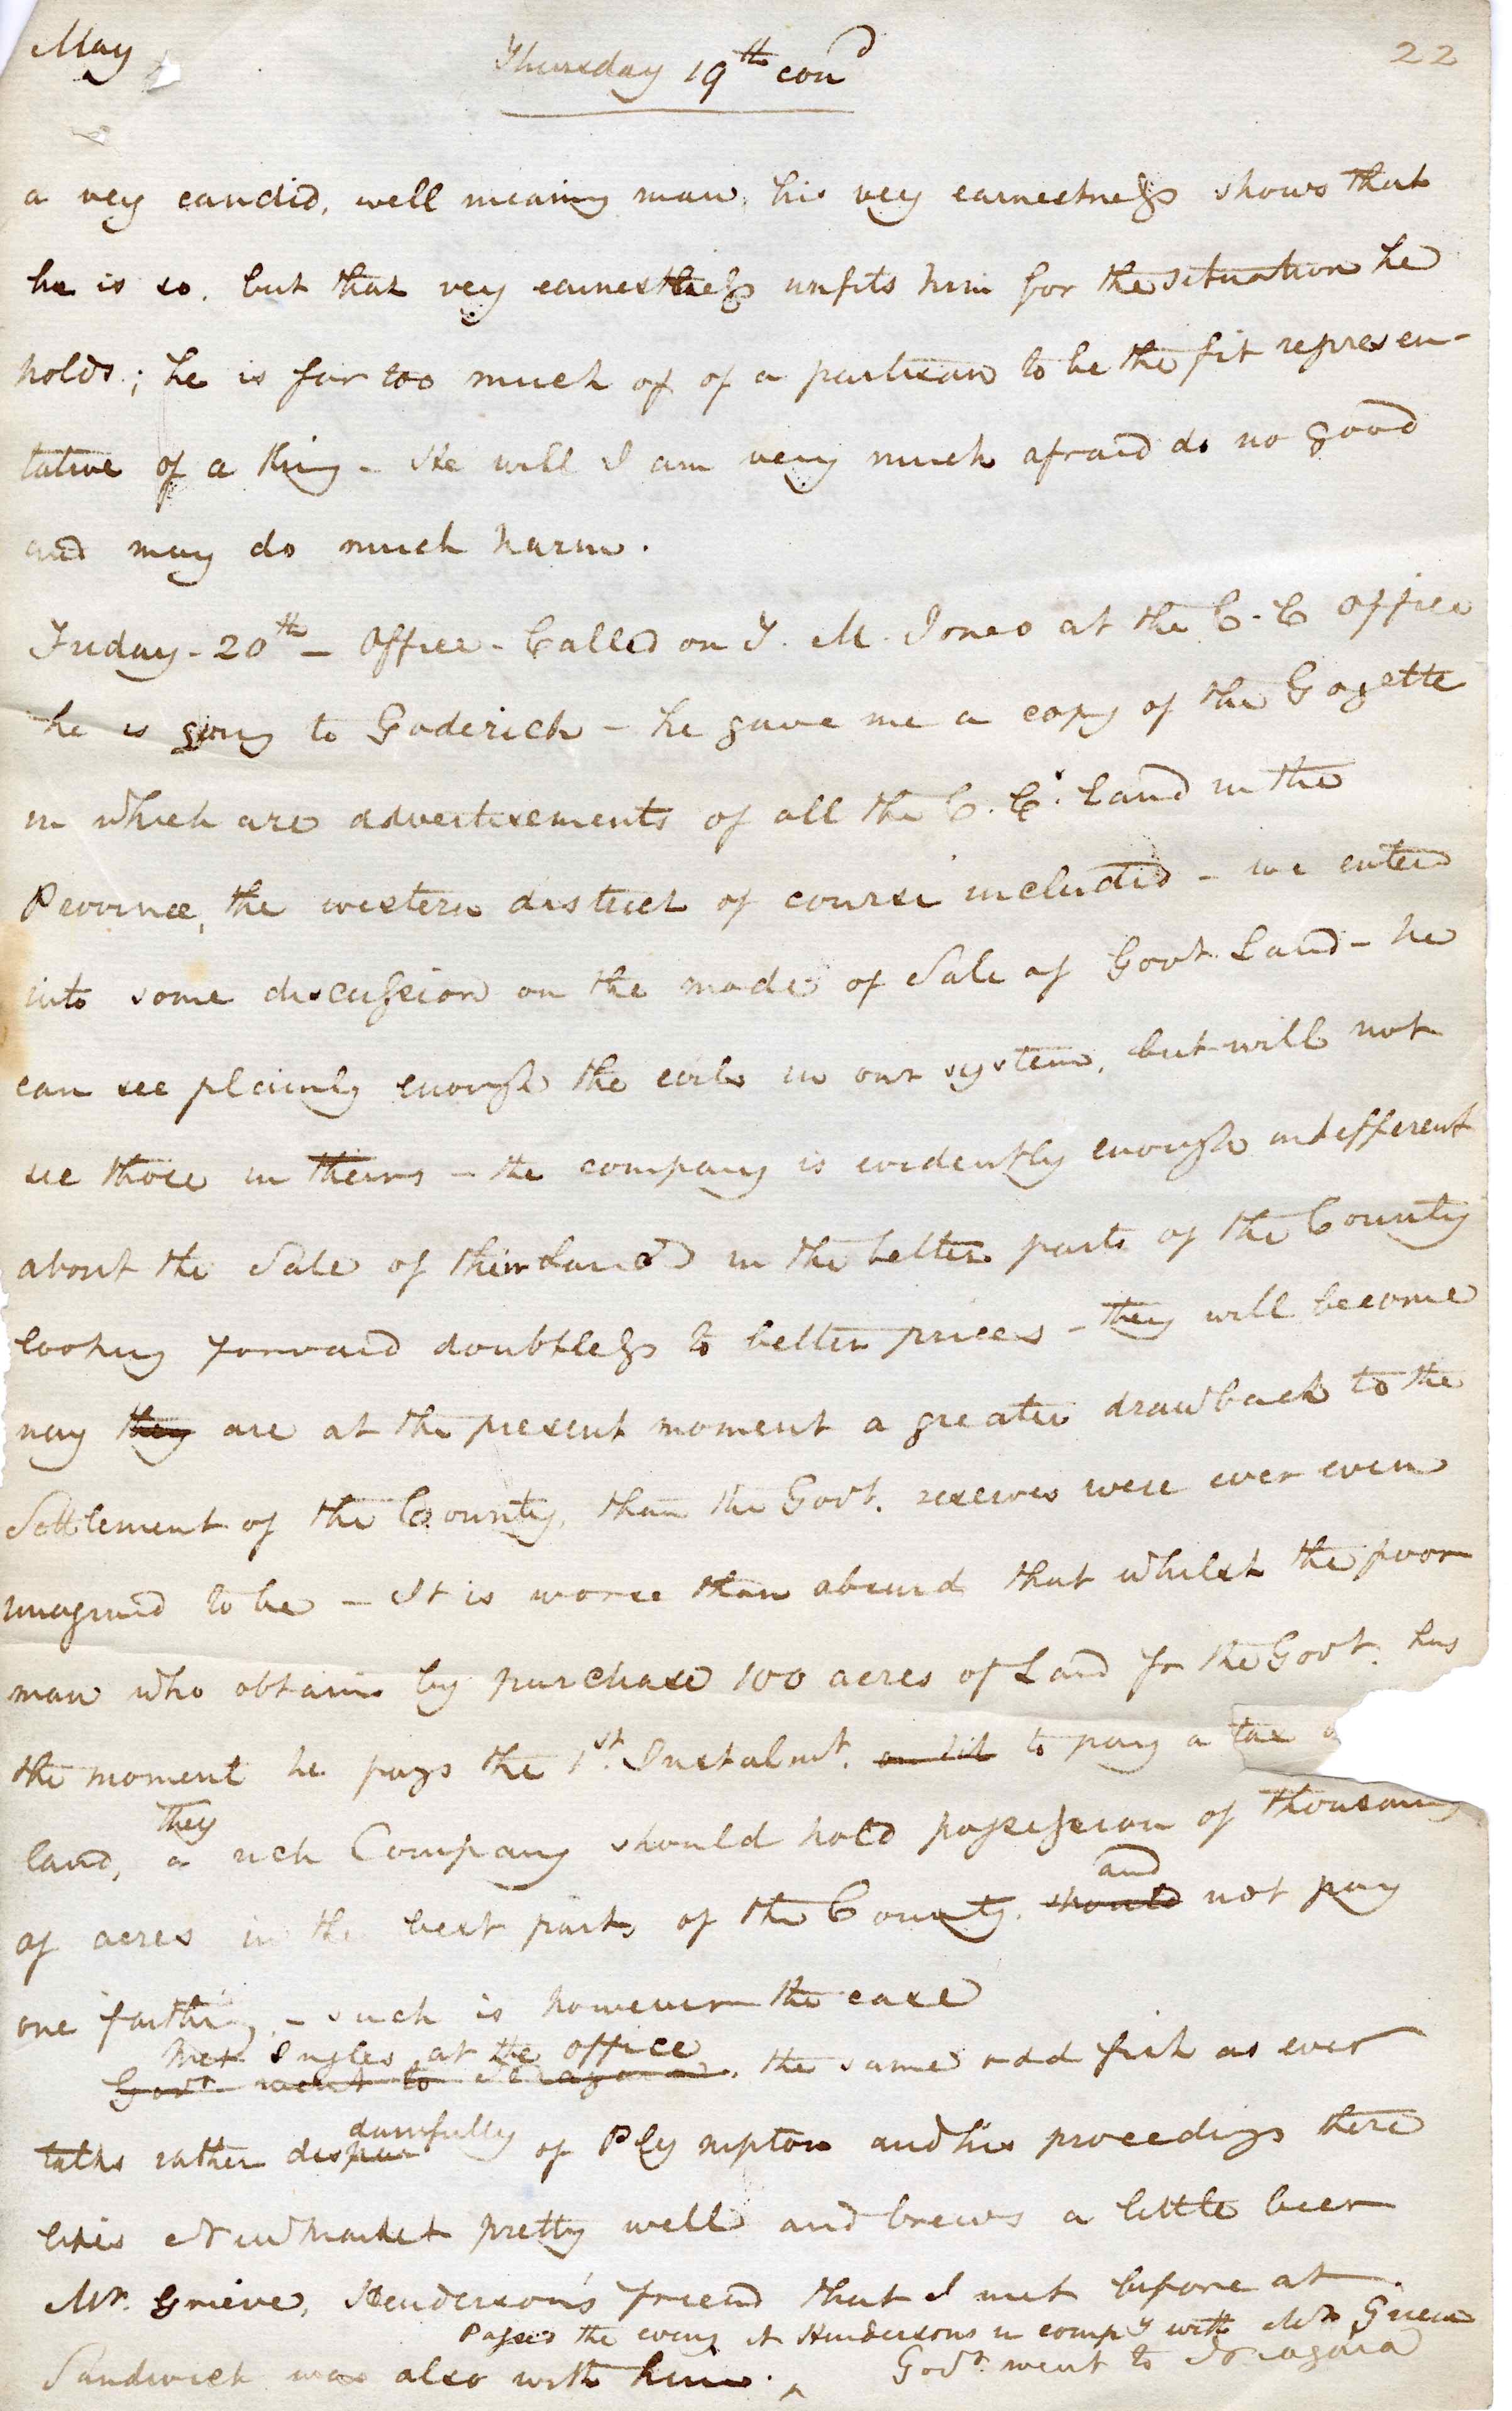 May Thursday 19th cond 22
a very candid, well meaning man, his very earnestness shows that
he is so, but that very earnestness unfits him for the situation he
holds; he is far too much of of a partizan to be the fit represen-
tative of a King - He will I am very much afraid do no good
and may do much harm.
Friday - 20th - Office - Called on T. M. Jones at the C. C Office
he is going to Goderich - he gave me a copy of the Gazette
in which are advertisements of all the C. C's. Land in the
Province, the western district of course included - we entered
into some discussion on the mode of Sale of Govt. Land - he
can see plainly enough the evils in our system, but will not
see those in theirs - the company is evidently enough indifferent
about the Sale of their Land in the better parts of the County
looking forward doubtless to better prices - they will become
nay they are at the present moment a greater drawback to the
Settlement of the County, than the Govt. reserves were ever even
imagined to be - It is worse than absurd that whilst the poor
man who obtains by purchase 100 acres of Land fr the Govt. has
the moment he pays the 1st. Instalmt. to pay a tax
they
land, a rich Company should hold possession of thousands
and
of acres in the best parts of the County, should not pay
one farthing, - such is however the case
Met Ingles at the office
Govr went to Niagara, the same odd fish as ever
dainfully
talks rather dispar of Plympton and his proceedings there
likes Newmarket pretty well and brews a little beer
Mr. Grieve, Henderson's friend that I met before at
Passed the eveng at Hendersons in compy with Mr Grieve
Sandwich was also with him. ^ Govr. went to Niagara